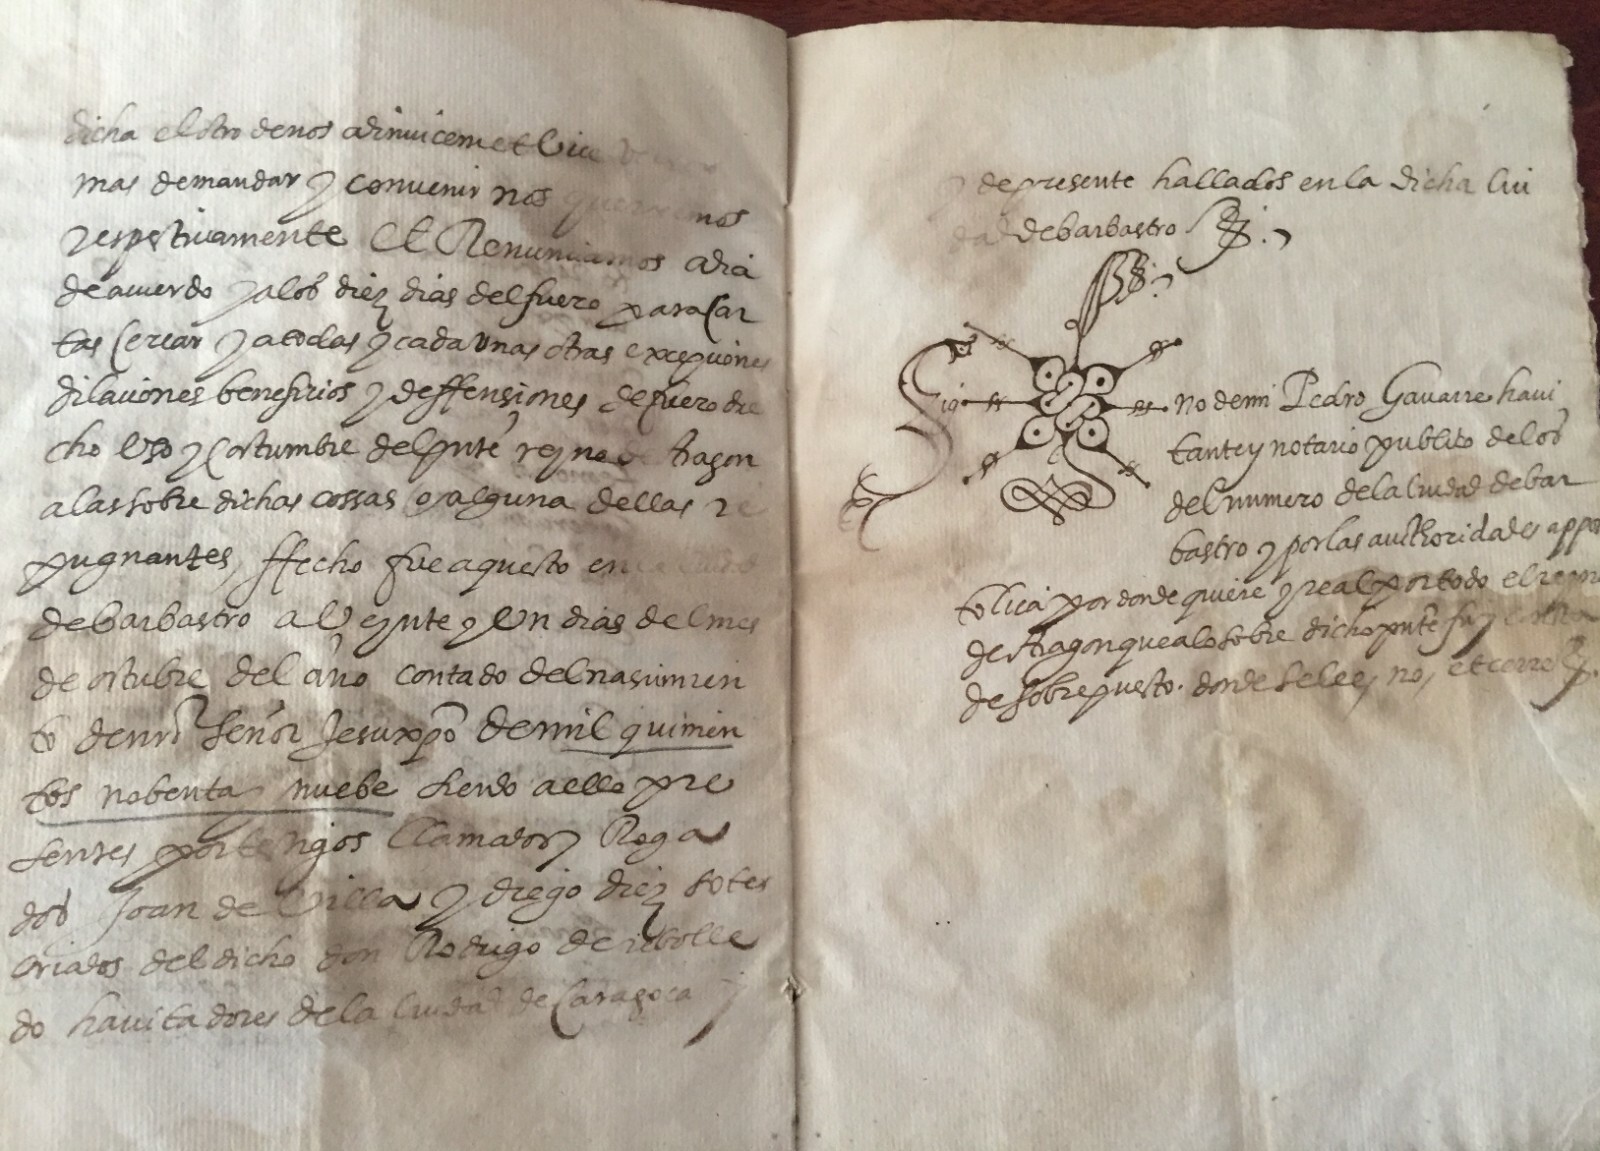 dicha el otro de nos adinvicem et vice
mas demandar y convenir nos querremos
respectivamente Et Renunciamos a dia
de acuerdo y a los diez dias del fuero para car
tas cercar y a todas y cada unas otras excepciones
dilaciones beneficios y deffensiones de fuero dre
cho uso y costumbre del pnte reyno de Aragon
a las sobre dichas cossas o alguna dellas re
pugnantes, ffecho fue aquesto en la ciudad
de barbastro a Veynte y Un dias del mes
de octubre del año contado del nascimien
to de nro señor Jesuxpo de mil quinien
tos nobenta y nuebe siendo a ello pre
sentes por testigos llamados y Roga
dos Joan de Villa y diego diez sotes
criados del dicho don Rodrigo de rebolle
do havitadores de la ciudad de Caragoca y
y de presente hallados en la dicha ciu
dad de barbastro
Sig no de mi Pedro Gavarre havi
tante y notario publico de los
del numero de la ciudad de bar
bastro y por las authoridades appos
tolica por donde quiere y real por todo el reyno
de Aragon que a lo sobre dicho pnte fuy
de sobrepuesto. donde se lee, no, et cerre